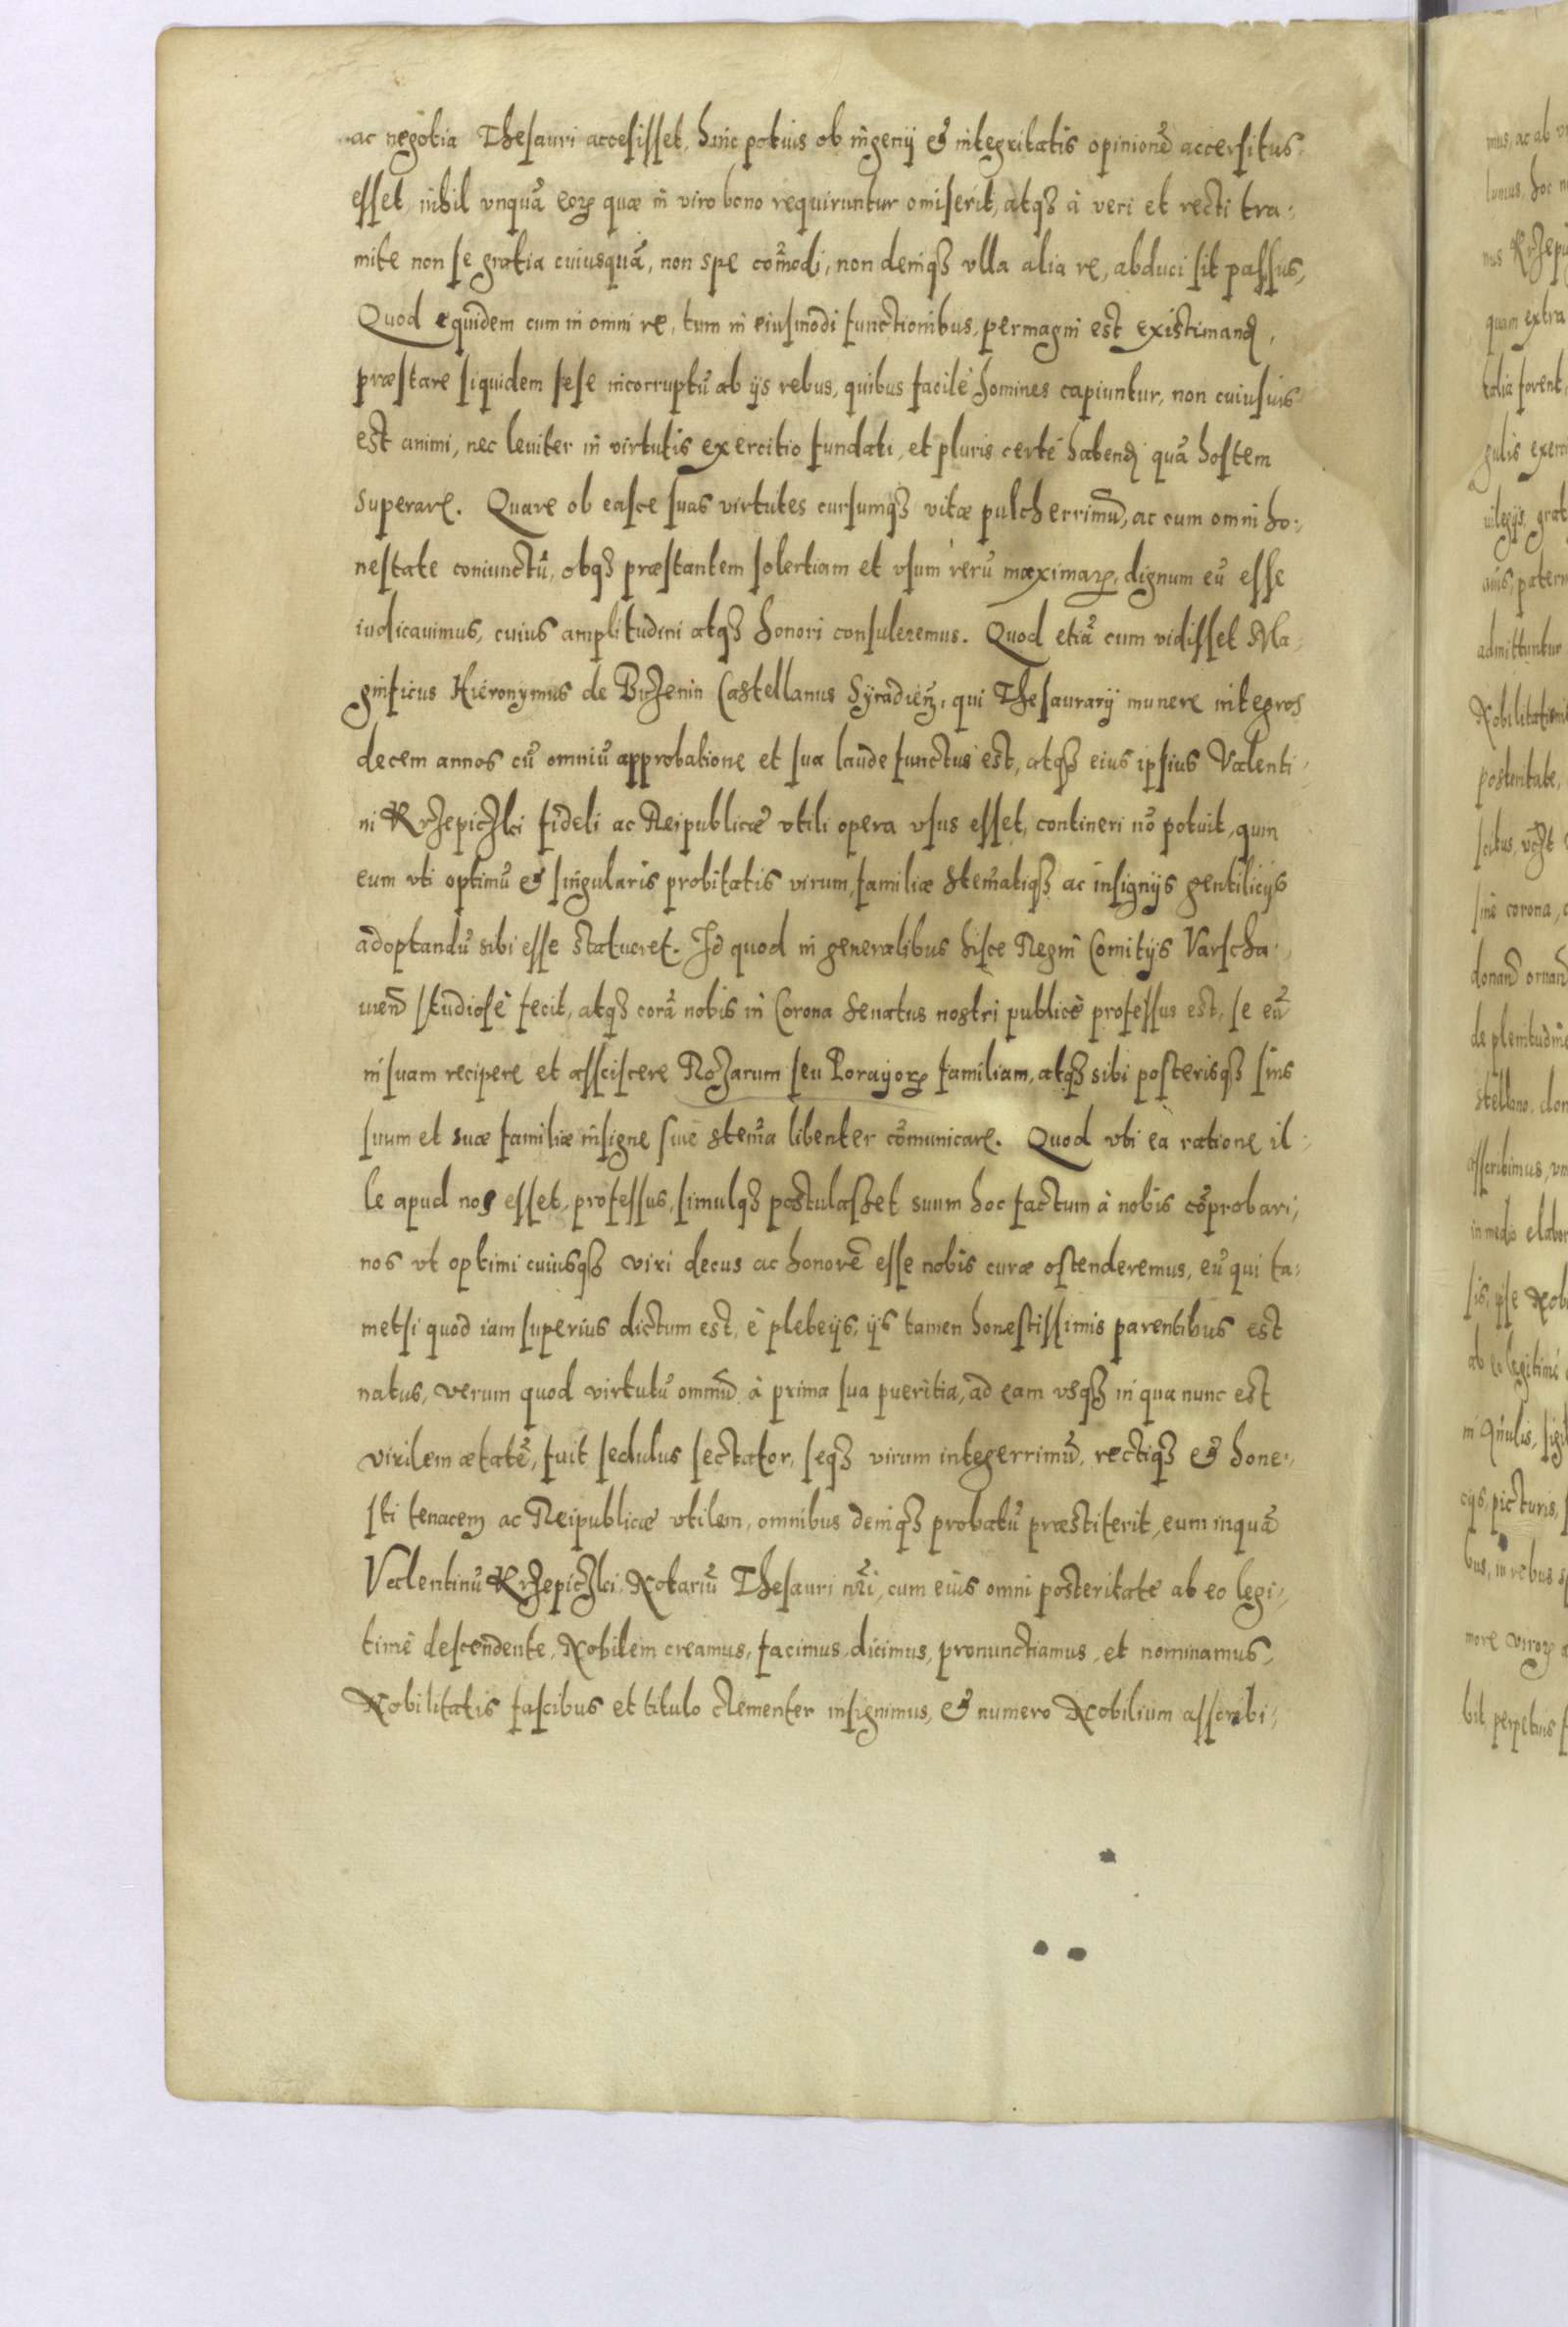 ac negotia Thesauri accesisset, hinc potius ob ingenij & integritatis opinionē accersitus
esset, nihil vnquā eoꝝ quæ in viro bono requiruntur omiserit, atqȝ à veri et recti tra:
mite non se gratia cuiusquā, non spe com̄odi, non deniqȝ vlla alia re, abduci sit passus,
Quod equidem cum in omni re, tum in eiusmodi functionibus, permagni est existimand,
præstare siquidem sese incorruptū ab ijs rebus, quibus facilè homines capiuntur, non cuiusuis
est animi, nec leuiter in virtutis exercitio fundati, et pluris certè habend quā hostem
superare. Quare ob easce suas virtutes cursumqȝ vitæ pulcherrimū, ac cum omni ho:
nestate coniunctū, obqȝ præstantem solertiam et vsum rerū maximaꝝ, dignum eū esse
iudicauimus, cuius amplitudini atqȝ honori consuleremus. Quod etiā cum vidisset Ma
gnificus Hieronymus de Buzenin Castellanus Syradień, qui Thesaurarij munere integros
decem annos cū omniū approbatione et sua laude functus est, atqȝ eius ipsius Valenti:
ni Krzepiczki fideli ac Reipublicæ vtili opera vsus esset, contineri nō potuit, quin
eum vti optimū & singularis probitatis virum, familiæ stem̄atiqȝ ac insignijs gentilicijs
adoptandū sibi esse statueret. Id quod in generalibus hisce Regni Comitijs Varscha:
uień studiosè fecit, atqȝ corā nobis in Corona Senatus nostri publicè professus est, se eū
in suam recipere et assciscere Rozarum seu Porayoꝝ familiam, atqȝ sibi posterisqȝ suis
suum et suæ familiæ insigne siue stem̄a libenter com̄unicare. Quod vti ea ratione il:
le apud nos esset professus, simulqȝ postulasset suum hoc factum à nobis cōprobari,
nos vt optimi cuiusqȝ viri decus ac honorē esse nobis curæ ostenderemus, eū qui ta:
metsi quod iam superius dictum est, è plebeijs, ijs tamen honestissimis parentibus est
natus, verum quod virtutū omniū à prima sua pueritia, ad eam vsqȝ in qua nunc est
virilem ætatē, fuit sedulus sectator, seqȝ virum integerrimū, rectiqȝ & hone:
sti tenacem ac Reipublicæ vtilem, omnibus deniqȝ probatū præstiterit, eum inquā
Valentinū Krzepiczki Notariū Thesauri nr̄i, cum eius omni posteritate ab eo legi:
timè descendente, Nobilem creamus, facimus, dicimus, pronunctiamus, et nominamus,
Nobilitatis fascibus et titulo clementer insignimus, & numero Nobilium asscribi: